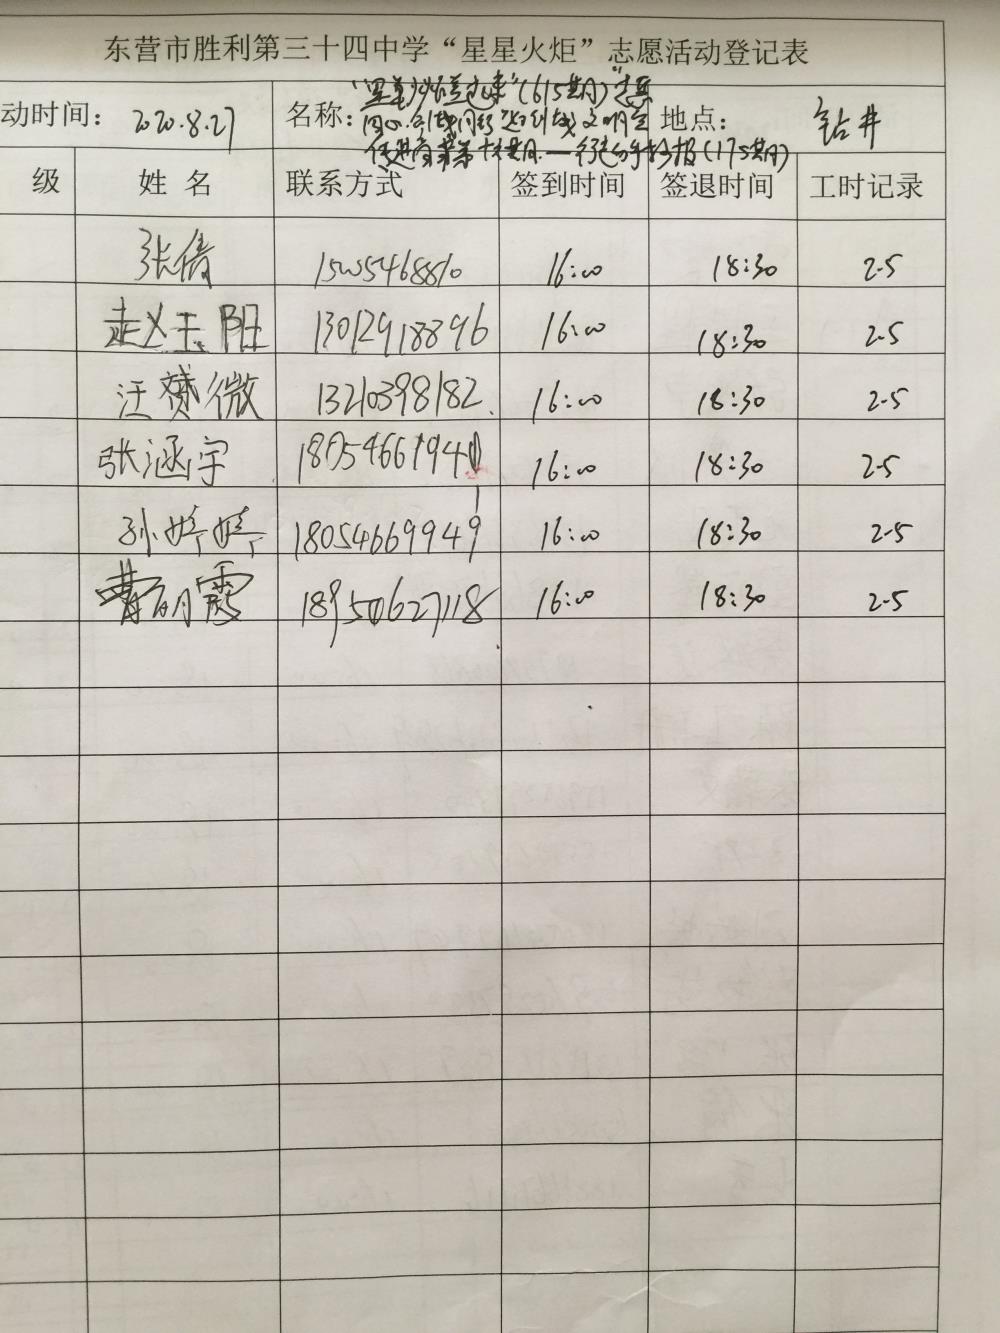 东营市胜利第三十四中学“星星火炬”志愿活动登记表
动时间： 2020.8.27 名称： (615期) 地点： 钻井
(175期)
级 姓 名 联系方式 签到时间 签退时间 工时记录
张倩 15054688810 16:00 18:30 2.5
赵玉阳 13012918896 16:00 18:30 2.5
汪赟微 13210398182 16:00 18:30 2.5
张涵宇 16:00 18:30 2.5
孙婷婷 18054669949 16:00 18:30 2.5
曹明霞 18950627118 16:00 18:30 2.5